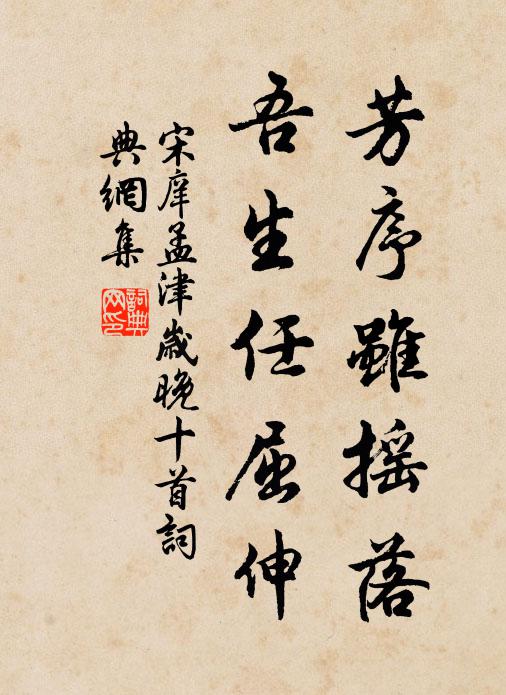 芳序雖搖落
吾生任屈伸
宋庠孟津歲晚十首詞
典網集
詞典网印